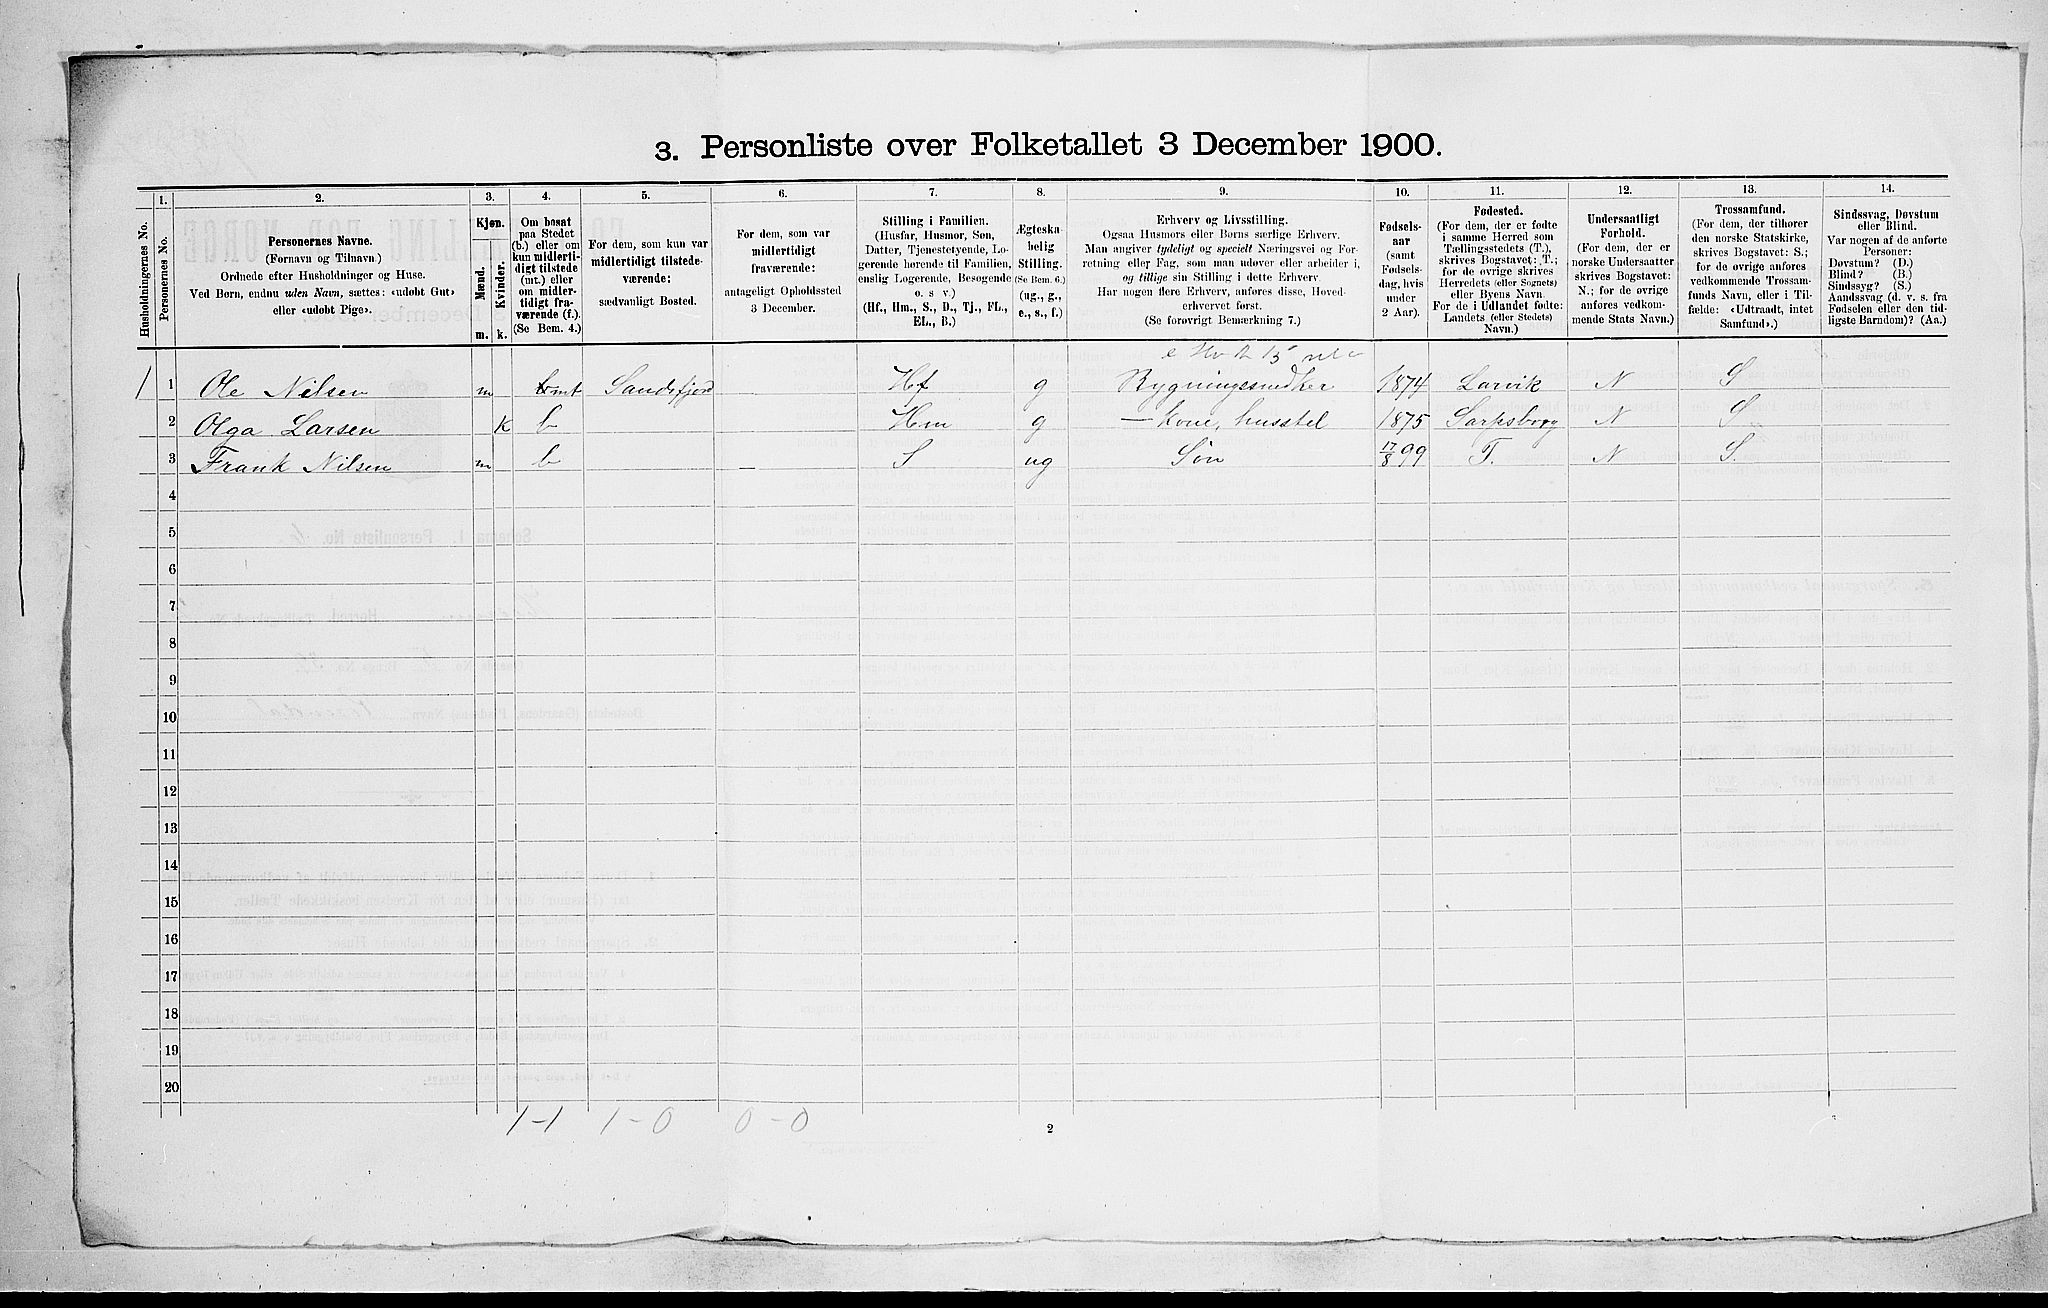 3. Personliste over Folketallet 3 December 1900.
Husholdningernes No.
1.
Personernes No.
2.
Personernes Navne.
(Fornavn og Tilnavn.)
Ordnede efter Husholdninger og Huse.
Ved Børn, endnu uden Navn, sættes: «udøbt Gut»
eller «udøbt Pige».
3.
Kjøn.
Mænd.
Kvinder.
m. k.
4.
Om bosat
paa Stedet
(b.) eller om
kun midlerti-
digt tilstede
(mt.) eller
om midler-
tidigt fra-
værende (f.).
(Se Bem. 4.)
5.
For dem, som kun var
midlertidigt tilstede-
værende:
sædvanligt Bosted.
6.
For dem, som var
midlertidigt
fraværende:
antageligt Opholdssted
3 December.
7.
Stilling i Familien.
(Husfar, Husmor, Søn,
Datter, Tjenestetyende, Lo-
gerende hørende til Familien,
enslig Logerende, Besøgende
o. s. v.)
(Hf., Hm., S., D., Tj., FL.,
EL., B.)
8.
Ægteska-
belig
Stilling.
(Se Bem. 6.)
(ug., g.,
e., s., f.)
9.
Erhverv og Livsstilling.
Ogsaa Husmors eller Børns særlige Erhverv.
Man angiver tydeligt og specielt Næringsvei og For-
retning eller Fag, som man udøver eller arbeider i,
og tillige sin Stilling i dette Erhverv.
Har nogen flere Erhverv, anføres disse, Hoved-
erhvervet først.
(Se forøvrigt Bemærkning 7.)
10.
Fødsels-
aar
(samt
Fødsels-
dag, hvis
under
2 Aar).
11.
Fødested.
(For dem, der er fødte
i samme Herred som
Tællingsstedets (T.),
skrives Bogstavet: T.;
for de øvrige skrives
Herredets (eller Sognets)
eller Byens Navn.
For de i Udlandet fødte:
Landets (eller Stedets)
Navn.)
12.
Undersaatligt
Forhold.
(For dem, der er
norske Undersaatter
skrives Bogstavet:
N.; for de øvrige
anføres vedkom-
mende Stats Navn.)
13.
Trossamfund.
(For dem, der tilhører
den norske Statskirke,
skrives Bogstavet: S.;
for de øvrige anføres
vedkommende Trossam-
funds Navn, eller i Til-
fælde: «Udtraadt, intet
Samfund».)
14.
Sindssvag, Døvstum
eller Blind.
Var nogen af de anførte
Personer:
Døvstum? (D.)
Blind? (B.)
Sindssyg? (S.)
Aandssvag (d. v. s. fra
Fødselen eller den tid-
ligste Barndom)? (Aa.)
1 1 Ole Nilsen m mt Sandefjord Hf g Rygningssnedker 1874 Larvik N S
2 Olga Larsen k b Hm g — Kone, husstel 1875 Sarpsborg N S
3 Frank Nilsen m b — S ug Søn 17/8 99 T. N S.
4
5
6
7
8
9
10
11
12
13
14
15
16
17
18
19
20
1-1 1-0 0-0
2